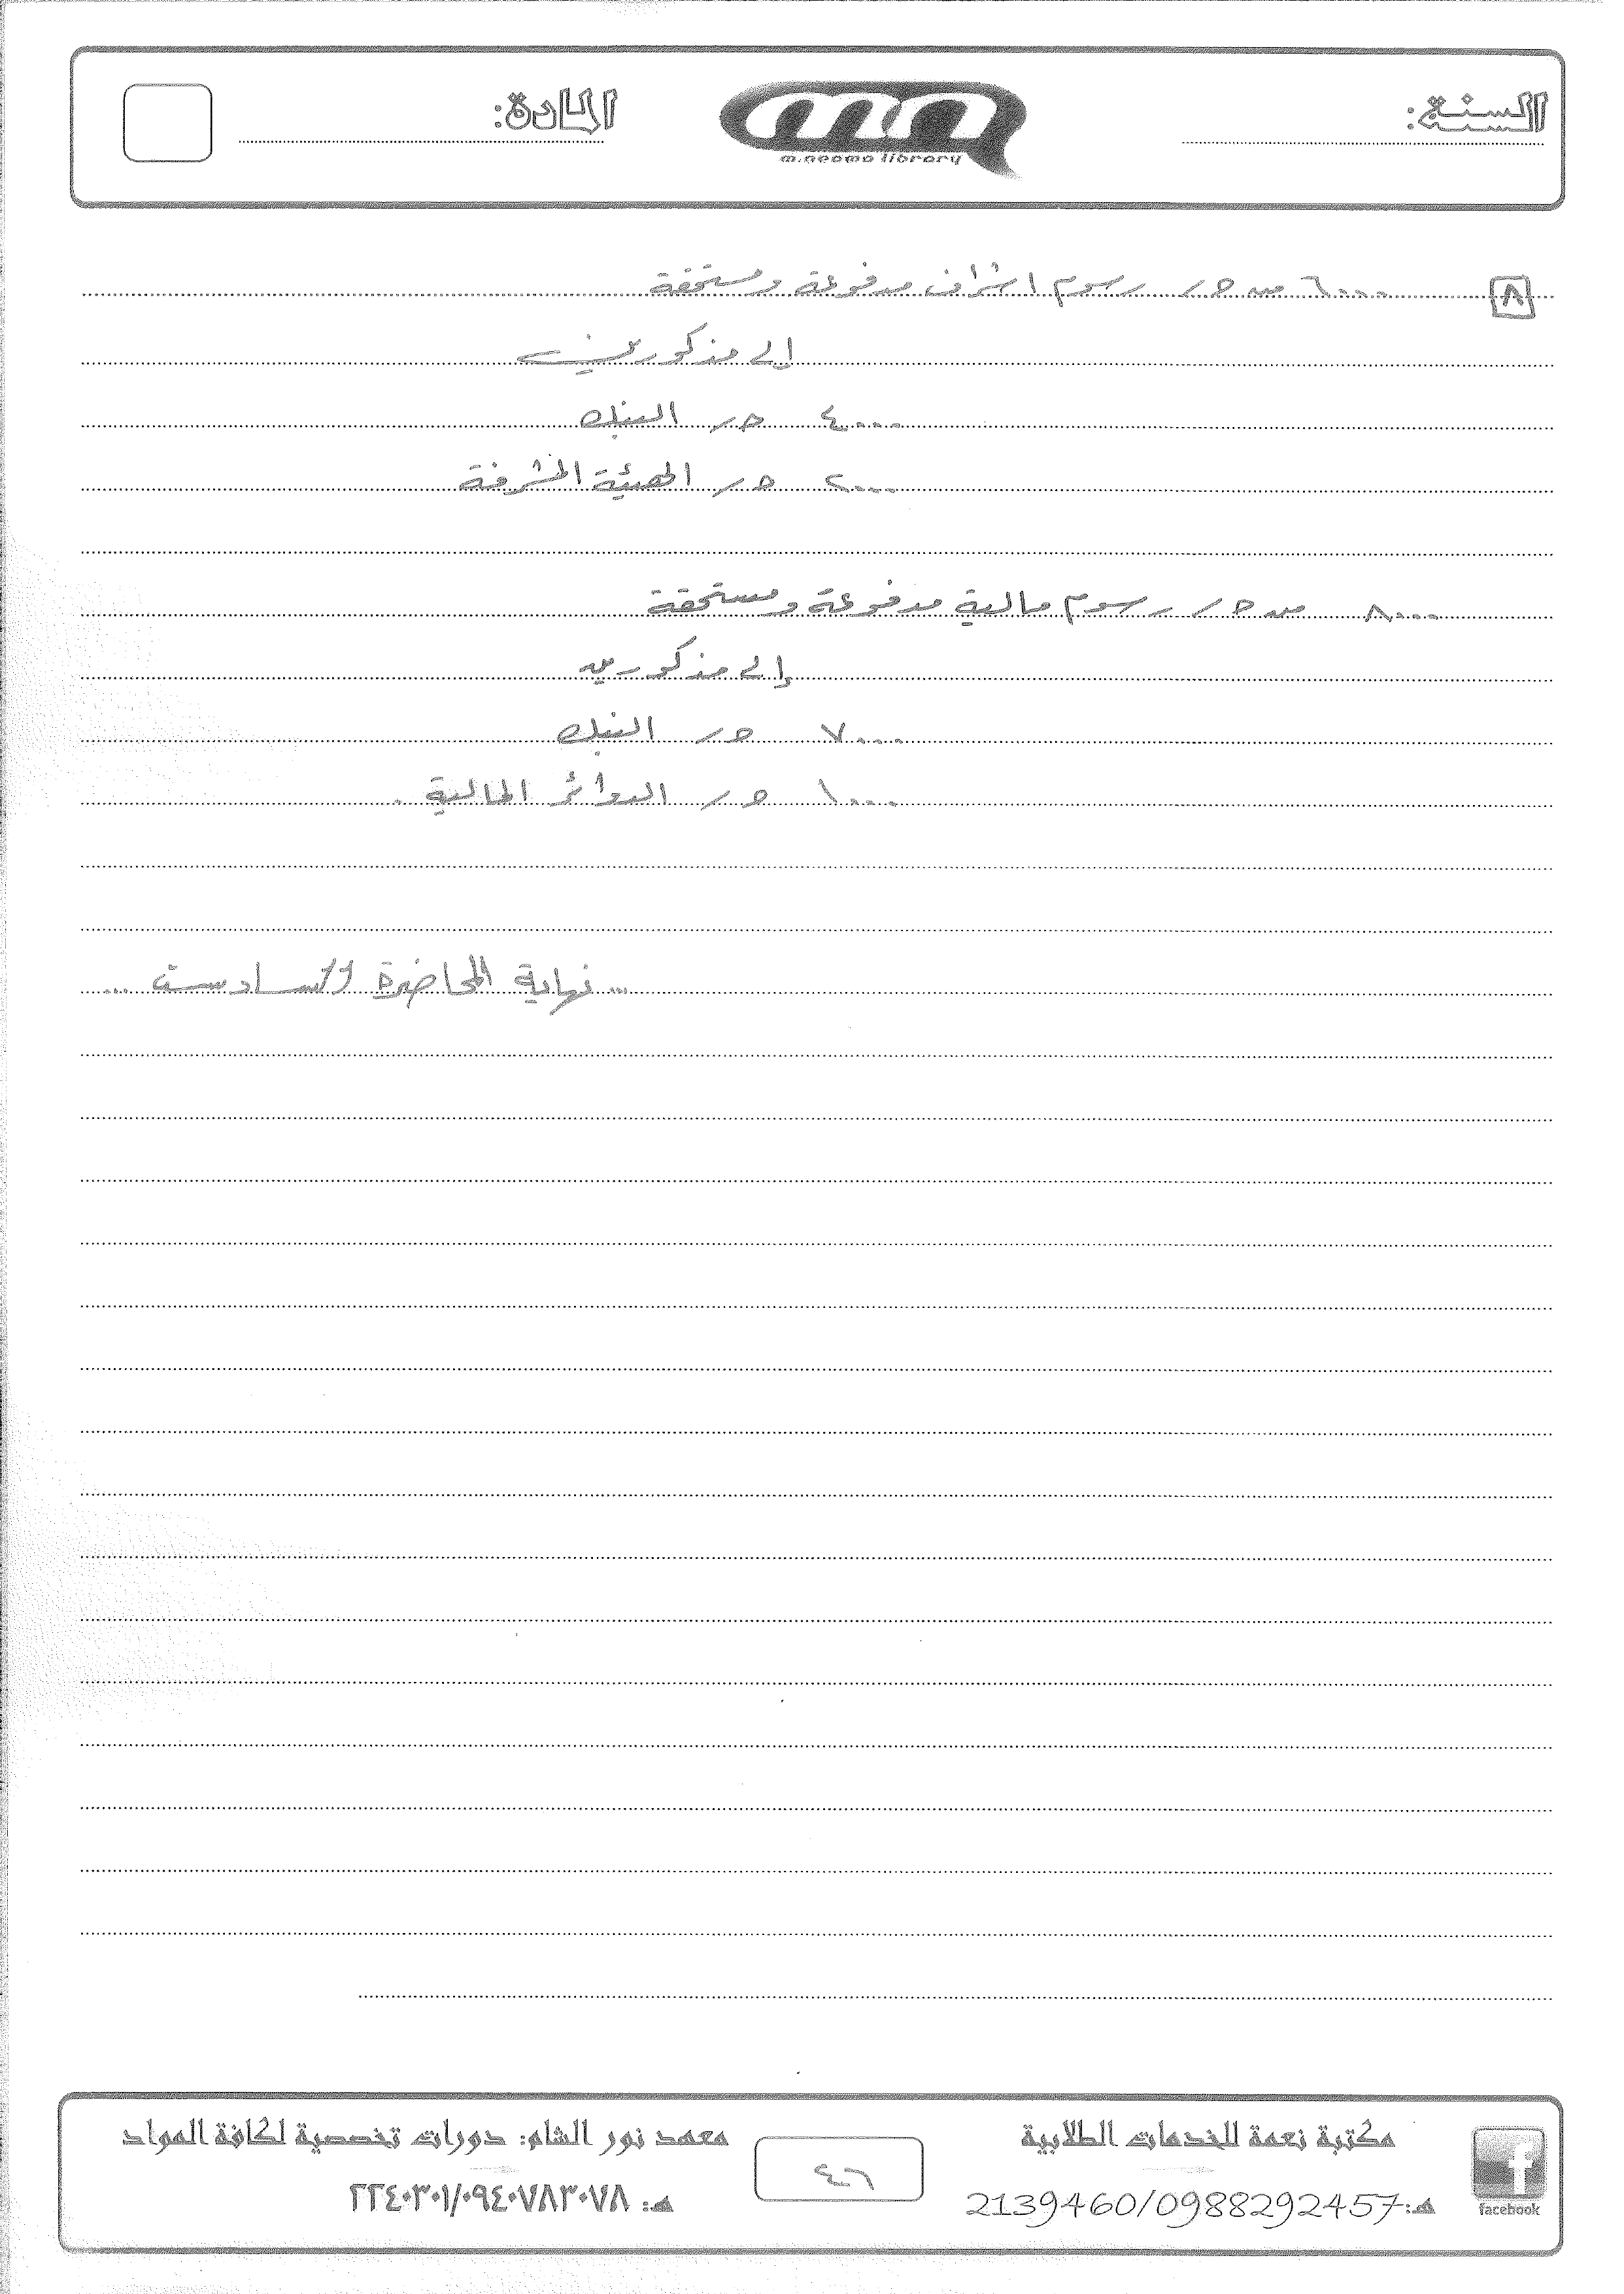 السنة:
m.neama library
المادة:
٨ ٦٠٠٠ من حـ/ رسوم اشراف مدفوعة ومستحقة
إلى مذكورين
٤٠٠٠ حـ/ البنك
٢٠٠٠ حـ/ الهيئة المشرفة
٨٠٠٠ من حـ/ رسوم مالية مدفوعة ومستحقة
إلى مذكورين
٧٠٠٠ حـ/ البنك
١٠٠٠ حـ/ الدوائر المالية .
... نهاية المحاضرة السادسة ...
مكتبة نعمة للخدمات الطلابية
هـ: 2139460/0988292457
facebook
٤٦
معهد نور الشام: دورات تخصصية لكافة المواد
هـ: ٢٢٤٠٣٠١/٠٩٤٠٧٨٣٠٧٨